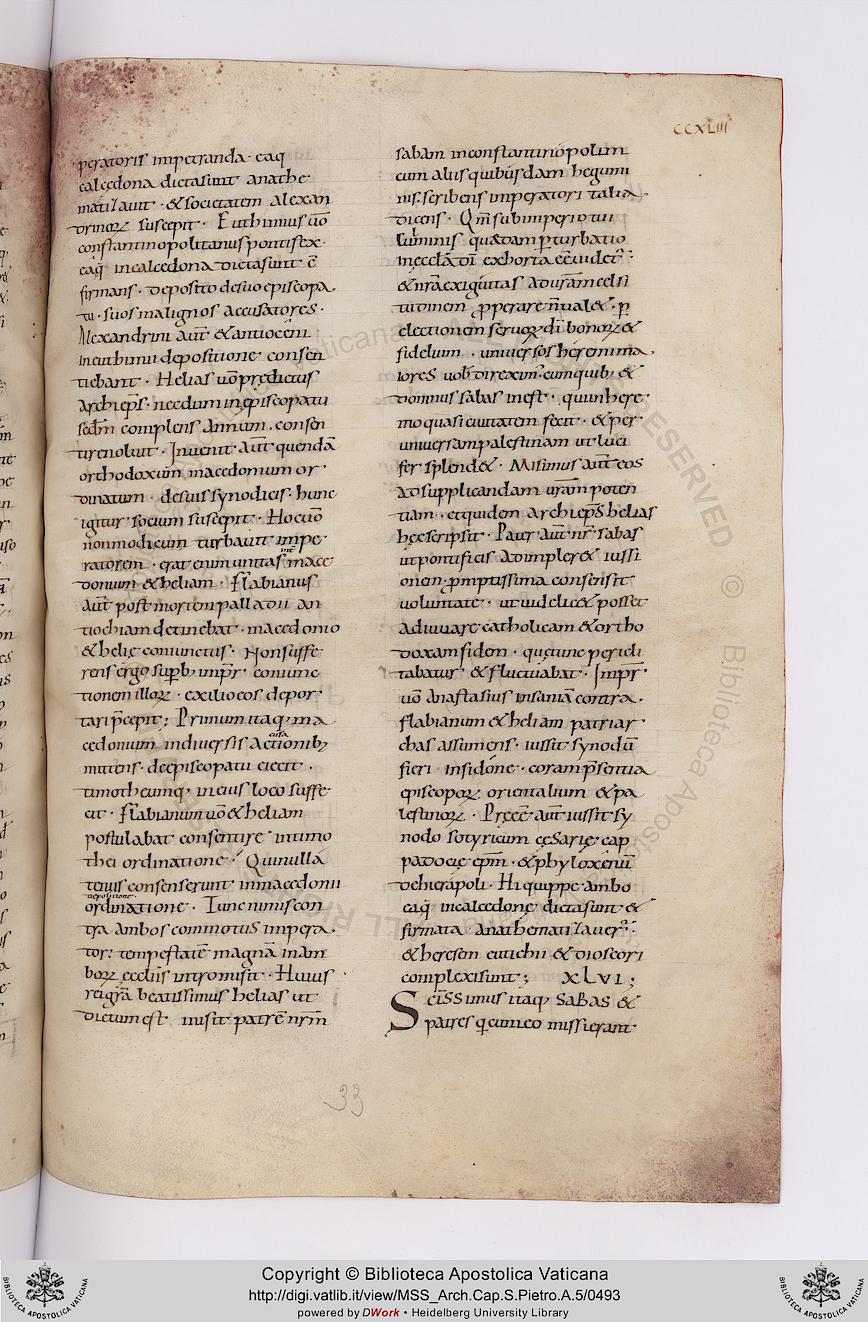 CCXLIII
peratoris impetranda· eaq
calcedona dictasunt anathe·
matizauit· & societatem alexan
drinoꝝ suscepit· Euthimius uō
constantinopolitanus pontifex·
eaq; incalcedona dictasunt ē
firmans· deposito desuo episcopa
tu· suos malignos accusatores·
Alexandrini aut̄ & antioceni
ineuthimii depositione consen
tiebant· Helias uō predictus
archiep̄s· necdum inepiscopatu
sedm̄ complens annum· consen
tire noluit· Inuenit aut̄ quendā
orthodoxum macedonium or·
dinatum· desuis synodicis· hunc
igitur socium suscepit· Hoc uō
non modicum turbauit impe
ratorem· erat enim unitas mace
donium & heliam· Flabianus
aut̄ post mortem palladii an
tiochiam detinebat· macedonio
& helie coniunctus· Non suffe
rens ergo supb; impr̄· coniunc
tionem illoꝝ· exilio eos depor·
tari p̄cepit; Primum itaq; ma
cedonium indiuersis actionib;
mittens· deepiscopatu eiecit·
timotheumq; ineius loco suffe
cit· Flabianum uō & heliam
postulabat consentire intimo
thei ordinatione· Qui nulla
tenus consenserunt inmacedonii
depositione·
ordinatione· Tunc nimis con
tra ambos commotus impera·
tor: tempestatē magnā inam
boꝝ ecclis intromisit· Huius
rei grā beatissimus helias ut
dictum est misit patrē nr̄m
sabam inconstantinopolim
cum aliis quibusdam hegumi
nis. scribens imperatori talia·
dicens· Qm̄ sub imperio tui
culminis quaedam pturbatio
& nr̄a exiguitas ad ur̄am celsi
tudinem pperare n̄ ual&· p
electionem seruoꝝ dī bonoꝝ &
fidelium· uniuersos heremi ma·
iores uob direxim· cum quib; &
domnus sabas inest· qui in here·
mo quasi ciuitatem fecit· & per
uniuersam palestinam ut luci
fer splend&· Misimus aut̄ eos
ad supplicandam ur̄am poten
tiam· et quidem archiep̄s helias
hec scripsit· Pater aut̄ nr̄ sabas
ut pontificis adimpler& iussi
onem· promptissima consensit
uoluntate· ut uidelic& posset
adiuuare catholicam & ortho
doxam fidem· que tunc pericli
tabatur· & fluctuabat· Impr̄·
uō anastasius insaniā contra·
flabianum & heliam patriar·
chas assumens· iussit synodū
fieri insidone· coram p̄sentia
episcopoꝝ orientalium & pa
lestinoꝝ· Preēē aut̄ iussit sy
nodo sotyricum cesarie cap
padocie ep̄m· & phyloxenū
dehierapoli· Hi quippe ambo
eaq; incalcedone dictasunt &
firmata anathematizauer·
& heresem eutichii & dioscori
complexi sunt; XLVI;
Sc̄issimus itaq; sabas &
patres q cum eo missi erant
33
Copyright © Biblioteca Apostolica Vaticana
http://digi.vatlib.it/view/MSS_Arch.Cap.S.Pietro.A.5/0493
powered by DWork • Heidelberg University Library